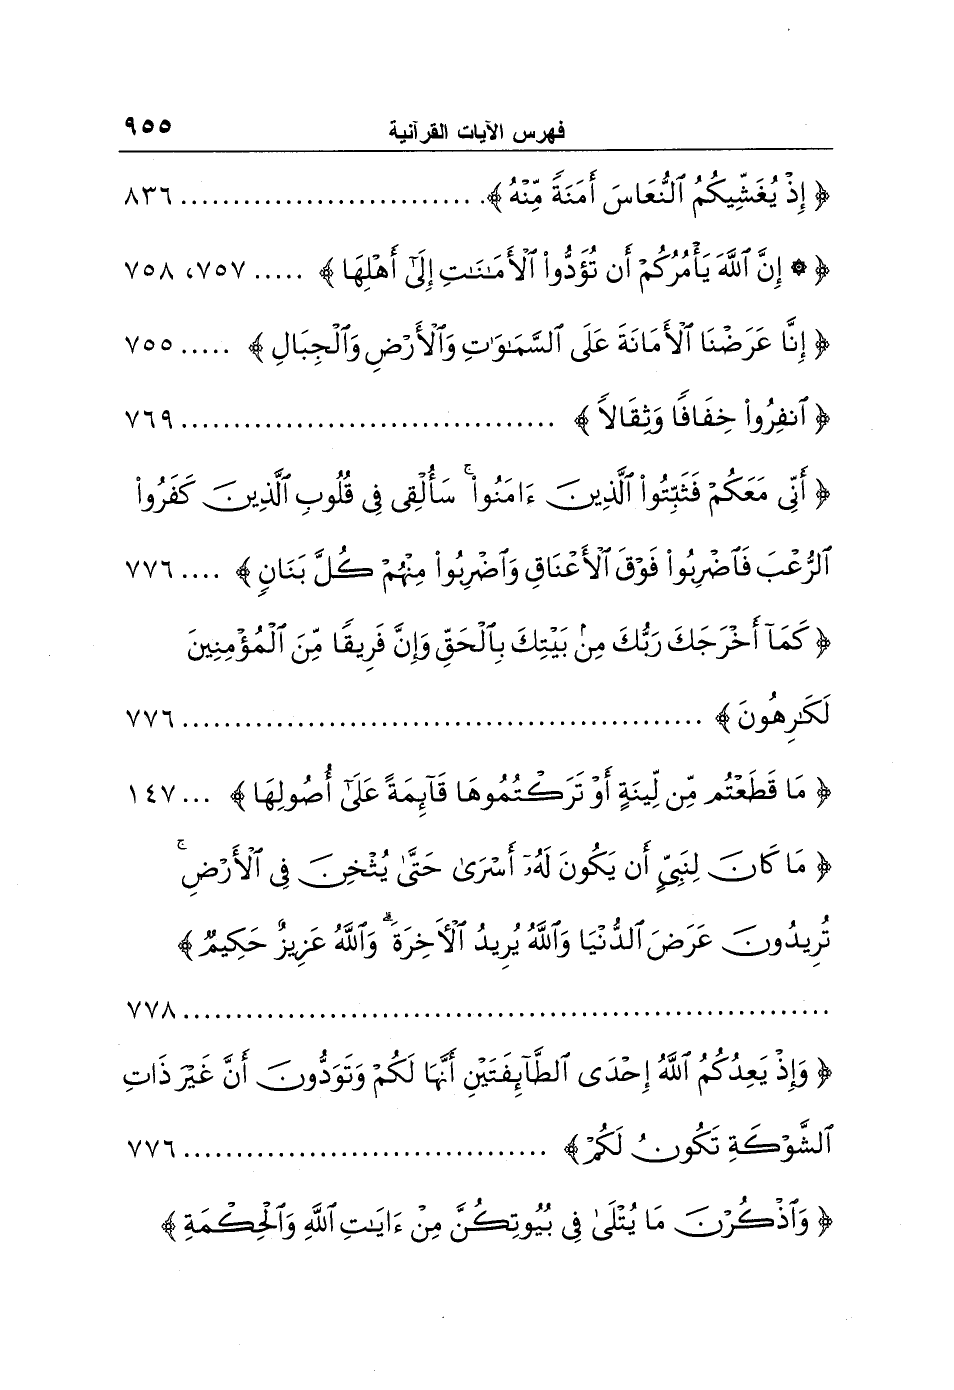 فهرس الآيات القرآنية ٩٥٥
﴿ إِذْ يُغَشِّيكُمُ ٱلنُّعَاسَ أَمَنَةً مِّنْهُ ﴾ ............................ ٨٣٦
﴿ ۞ إِنَّ ٱللَّهَ يَأْمُرُكُمْ أَن تُؤَدُّواْ ٱلْأَمَـٰنَـٰتِ إِلَىٰٓ أَهْلِهَا ﴾ ..... ٧٥٧، ٧٥٨
﴿ إِنَّا عَرَضْنَا ٱلْأَمَانَةَ عَلَى ٱلسَّمَـٰوَٰتِ وَٱلْأَرْضِ وَٱلْجِبَالِ ﴾ ..... ٧٥٥
﴿ ٱنفِرُواْ خِفَافًا وَثِقَالاً ﴾ .................................... ٧٦٩
﴿ أَنِّى مَعَكُمْ فَثَبِّتُواْ ٱلَّذِينَ ءَامَنُواْ ۚ سَأُلْقِى فِى قُلُوبِ ٱلَّذِينَ كَفَرُواْ
ٱلرُّعْبَ فَٱضْرِبُواْ فَوْقَ ٱلْأَعْنَاقِ وَٱضْرِبُواْ مِنْهُمْ كُلَّ بَنَانٍ ﴾ .... ٧٧٦
﴿ كَمَآ أَخْرَجَكَ رَبُّكَ مِنۢ بَيْتِكَ بِٱلْحَقِّ وَإِنَّ فَرِيقًا مِّنَ ٱلْمُؤْمِنِينَ
لَكَـٰرِهُونَ ﴾ .................................................. ٧٧٦
﴿ مَا قَطَعْتُم مِّن لِّينَةٍ أَوْ تَرَكْتُمُوهَا قَآئِمَةً عَلَىٰٓ أُصُولِهَا ﴾ ... ١٤٧
﴿ مَا كَانَ لِنَبِىٍّ أَن يَكُونَ لَهُۥٓ أَسْرَىٰ حَتَّىٰ يُثْخِنَ فِى ٱلْأَرْضِ ۚ
تُرِيدُونَ عَرَضَ ٱلدُّنْيَا وَٱللَّهُ يُرِيدُ ٱلْـَٔاخِرَةَ ۗ وَٱللَّهُ عَزِيزٌ حَكِيمٌ ﴾
.............................................................. ٧٧٨
﴿ وَإِذْ يَعِدُكُمُ ٱللَّهُ إِحْدَى ٱلطَّآئِفَتَيْنِ أَنَّهَا لَكُمْ وَتَوَدُّونَ أَنَّ غَيْرَ ذَاتِ
ٱلشَّوْكَةِ تَكُونُ لَكُمْ ﴾ ................................... ٧٧٦
﴿ وَٱذْكُرْنَ مَا يُتْلَىٰ فِى بُيُوتِكُنَّ مِنْ ءَايَـٰتِ ٱللَّهِ وَٱلْحِكْمَةِ ﴾